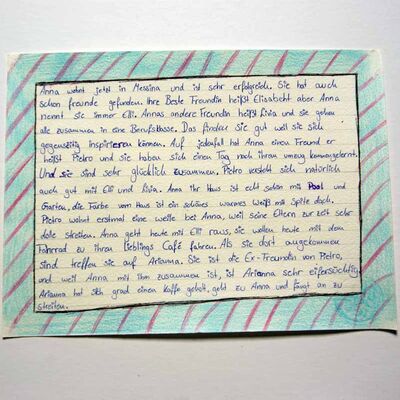 Anna wohnt jetzt in Messina und ist sehr erfolgreich. Sie hat auch
schon freunde gefunden. Ihre Beste Freundin heißt Elisabeht aber Anna
nennt sie immer Elli. Annas andere Freundin heißt Livia und sie gehen
alle zusammen in eine Berufsklasse. Das finden sie gut weil sie sich
gegenseitig inspirieren können. Auf jedenfal hat Anna einen Freund er
heißt Pietro und sie haben sich einen Tag nach ihren umzug kennengelernt.
Und sie sind sehr glücklich zusammen. Pietro versteht sich natürlich
auch gut mit Elli und Livia. Anna ihr Haus ist echt schön mit Pool und
Garten, die Farbe vom Haus ist ein schönes warmes Weiß mit Spitze dach.
Pietro wohnt erstmal eine weile bei Anna, weil seine Eltern zur zeit sehr
dolle streiten. Anna geht heute mit Elli raus, sie wollen heute mit dem
Fahrrad zu ihren Lieblings Café fahren. Als sie dort angekommen
sind treffen sie auf Arianna. Sie ist die Ex-Freundin von Pietro,
und weil Anna mit ihm zusammen ist, ist Arianna sehr eifersüchtig.
Arianna hat sich grad einen Kaffe geholt, geht zu Anna und fängt an zu
streiten.